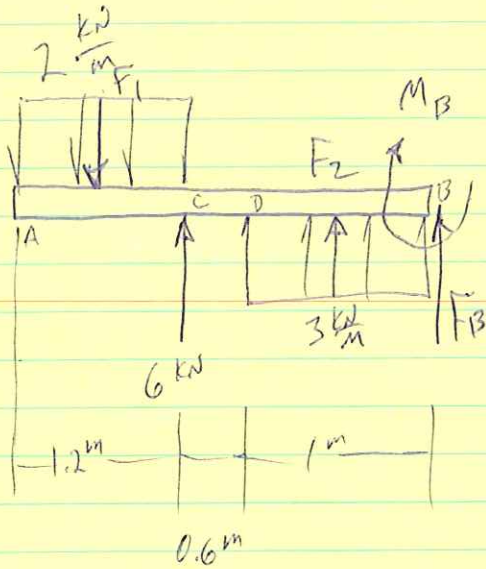 2 kN/m
F1
MB
F2
A
C
D
B
3 kN/M
FB
6 kN
1.2 m
1 m
0.6 m